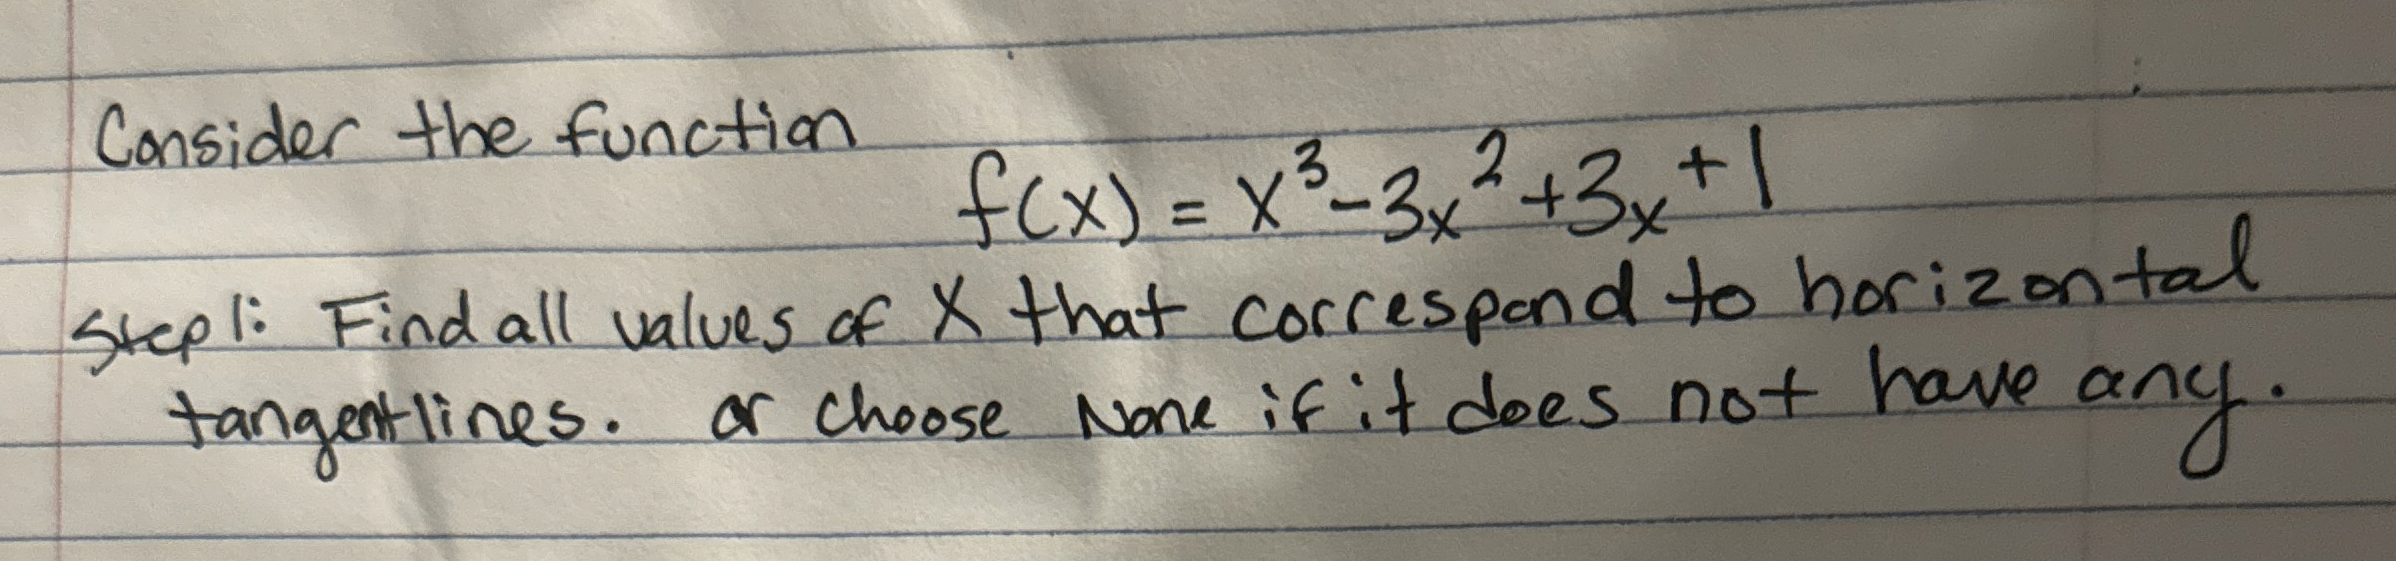 Consider the function
f(x) = x³-3x²+3x+1
Step1: Find all values of X that correspond to horizontal
tangentlines. or choose None if it does not have any.